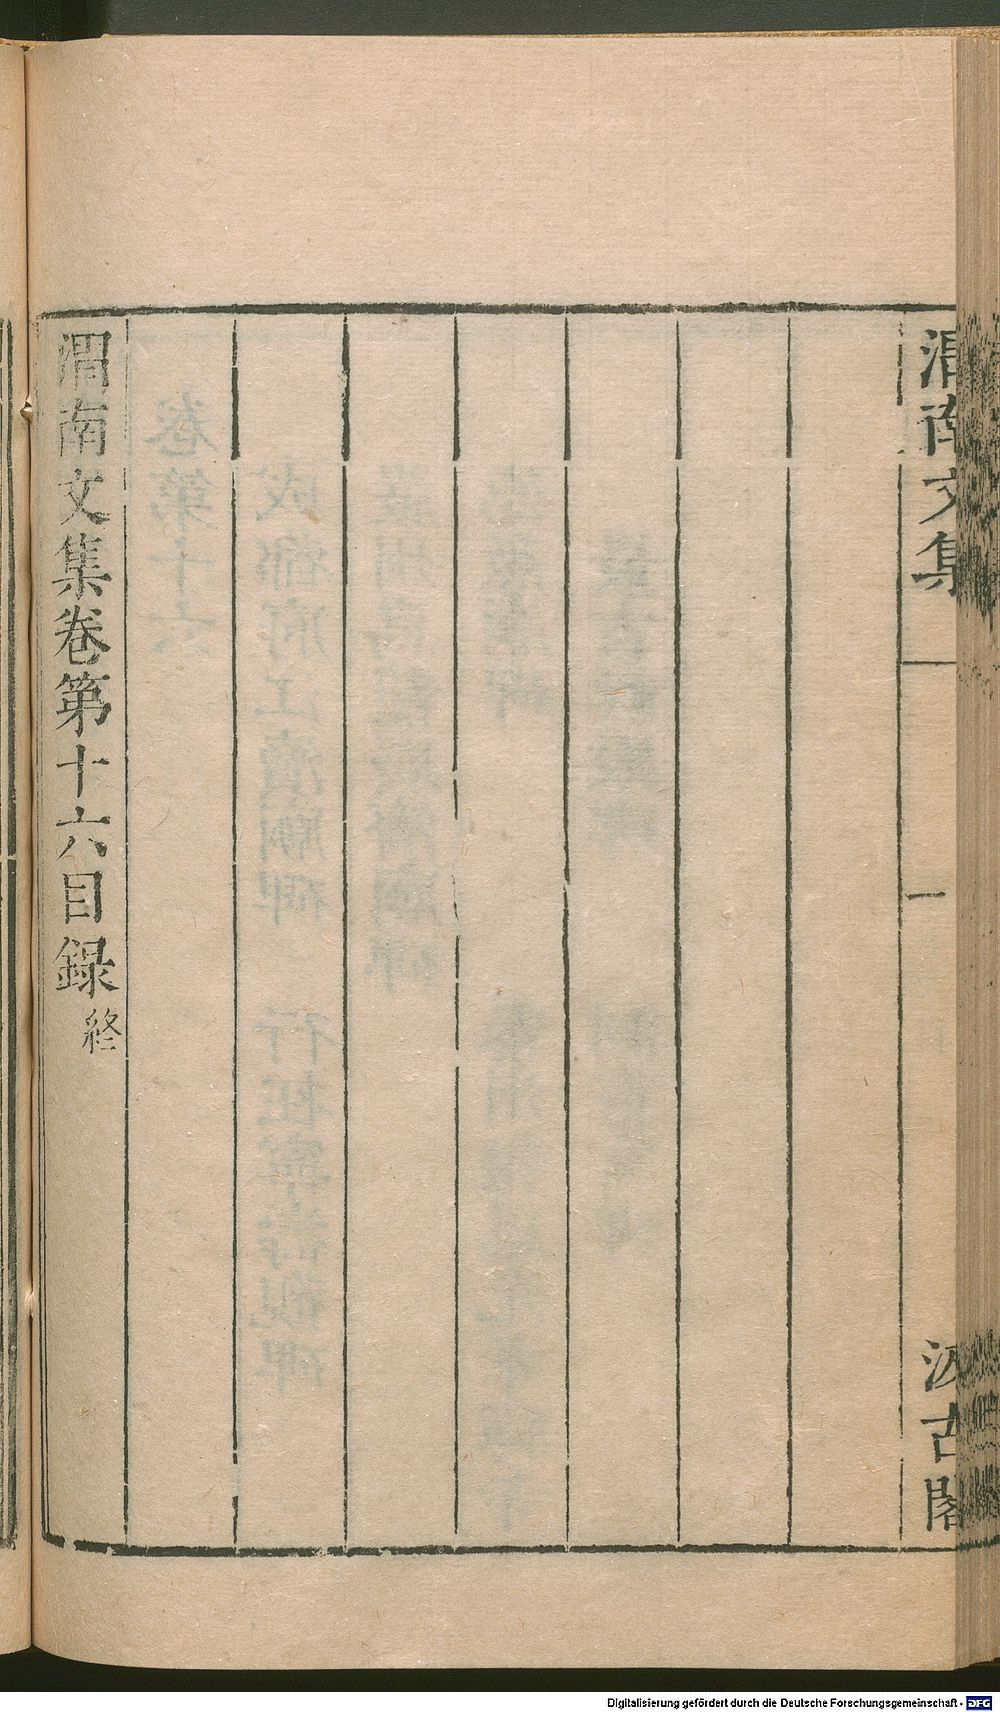 渭南文集
一
汲古閣
渭南文集卷第十六目録終
Digitalisierung gefördert durch die Deutsche Forschungsgemeinschaft - DFG